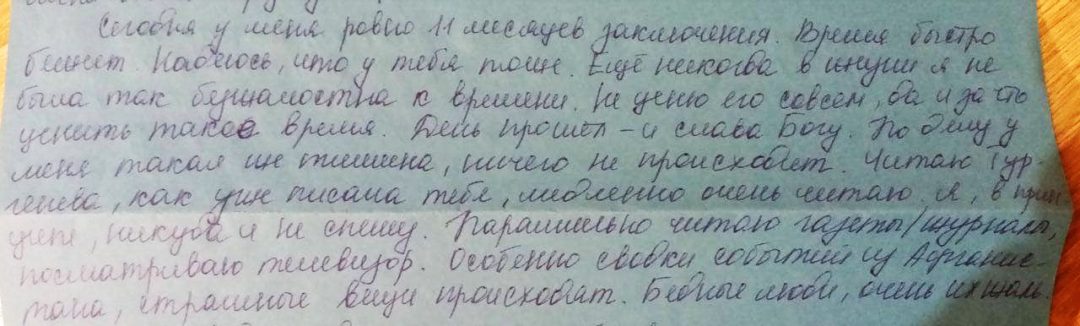 Сегодня у меня ровно 11 месяцев заключения. Время быстро
бежит. Надеюсь, что у тебя тоже. Ещё никогда в жизни я не
была так безжалостна к времени. Не ценю его совсем, да и за что
ценить такое время. День прошёл – и слава Богу. По делу у
меня такая же тишина, ничего не происходит. Читаю Тур-
генева, как уже писала тебе, медленно очень читаю я, в прин-
ципе, никуда и не спешу. Параллельно читаю газеты/журналы,
посматриваю телевизор. Особенно сводки событий из Афганис-
тана, страшные вещи происходят. Бедные люди, очень их жаль.